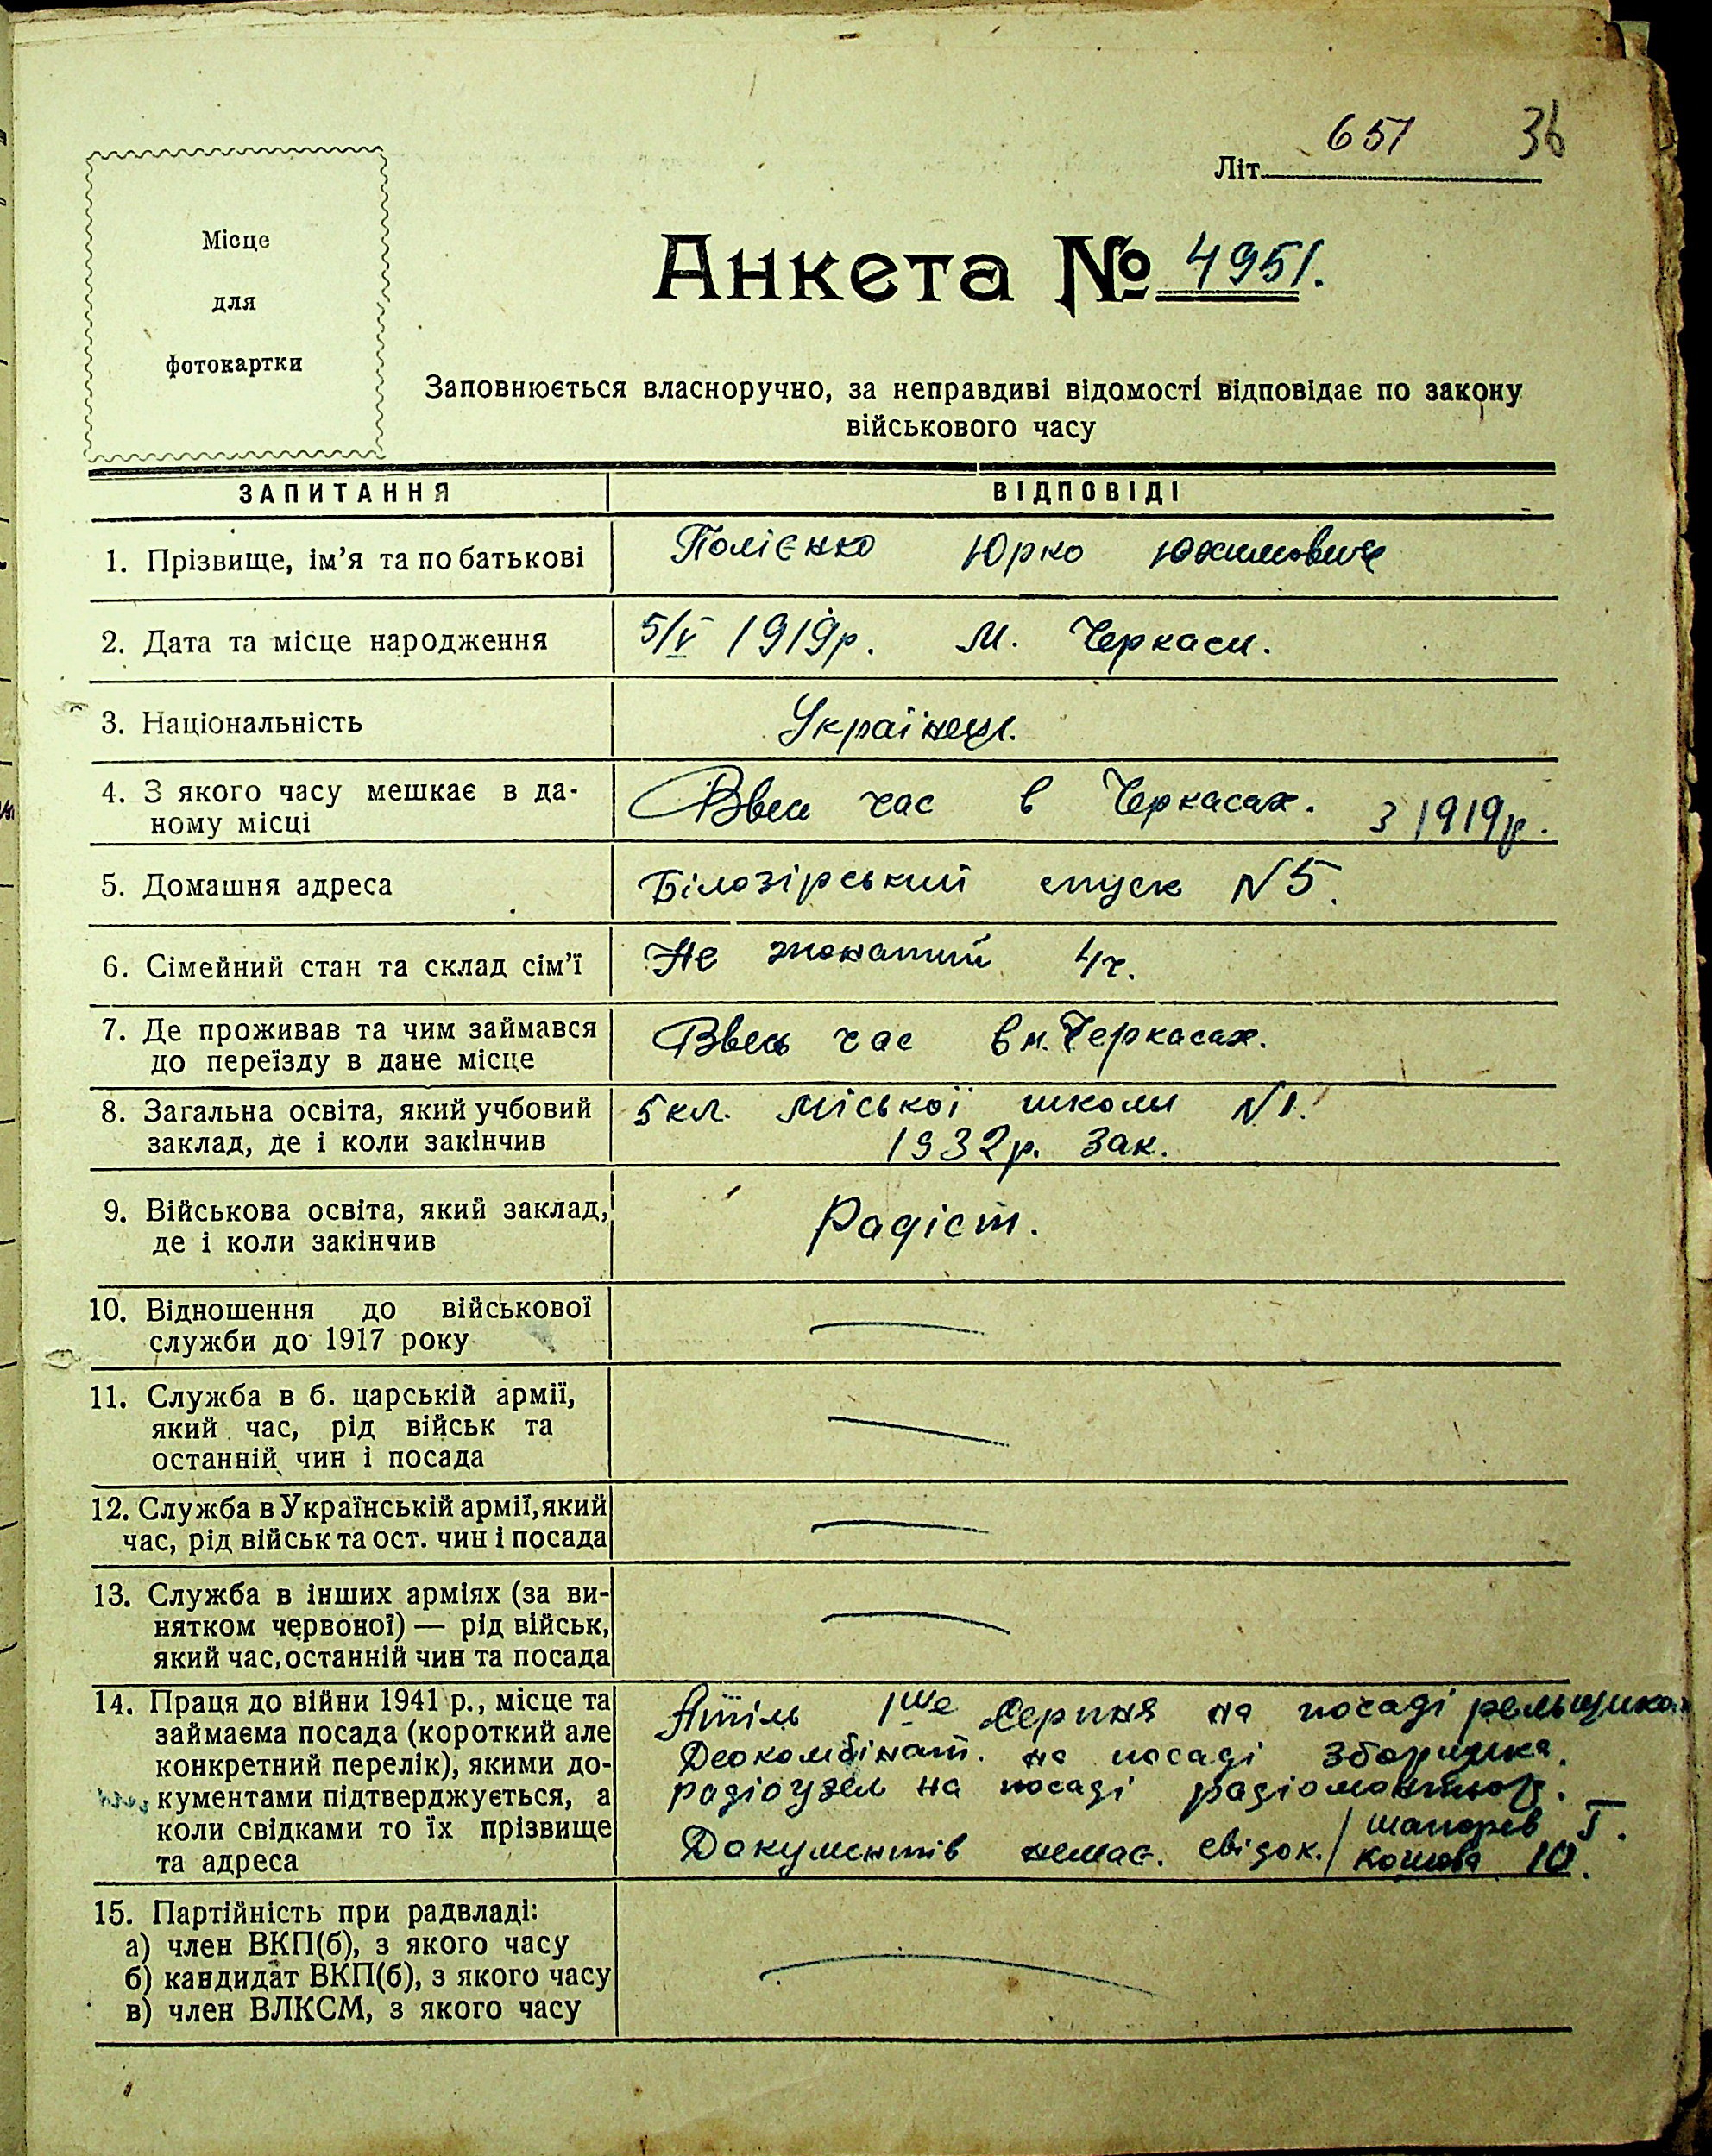 651
36
Літ.
Місце
для
фотокартки
Анкета № 4951.
Заповнюється власноручно, за неправдиві відомості відповідає по закону
військового часу
ЗАПИТАННЯ
ВІДПОВІДІ
1. Прізвище, ім'я та по батькові
Полієнко Юрко Юхимович
2. Дата та місце народження
5/V 1919р. м. Черкаси.
3. Національність
Українец.
4. З якого часу мешкає в да-
ному місці
Ввесь час в Черкасах. з 1919р.
5. Домашня адреса
Білозірський спуск N5.
6. Сімейний стан та склад сім'ї
Не жонатий 4ч.
7. Де проживав та чим займався
до переїзду в дане місце
Ввесь час в м. Черкасах.
8. Загальна освіта, який учбовий
заклад, де і коли закінчив
5 кл. міської школи N1.
1932р. зак.
9. Військова освіта, який заклад,
де і коли закінчив
Радіст.
10. Відношення до військової
служби до 1917 року
11. Служба в б. царській армії,
який час, рід військ та
останній чин і посада
12. Служба в Українській армії, який
час, рід військ та ост. чин і посада
13. Служба в інших арміях (за ви-
нятком червоної) — рід військ,
який час, останній чин та посада
14. Праця до війни 1941 р., місце та
займаєма посада (короткий але
конкретний перелік), якими до-
кументами підтверджується, а
коли свідками то їх прізвище
та адреса
1ше Серпня на посаді
на посаді зборщика.
радіоузел на посаді радіомонтьор.
Документів немає. свідок.
15. Партійність при радвладі:
а) член ВКП(б), з якого часу
б) кандидат ВКП(б), з якого часу
в) член ВЛКСМ, з якого часу